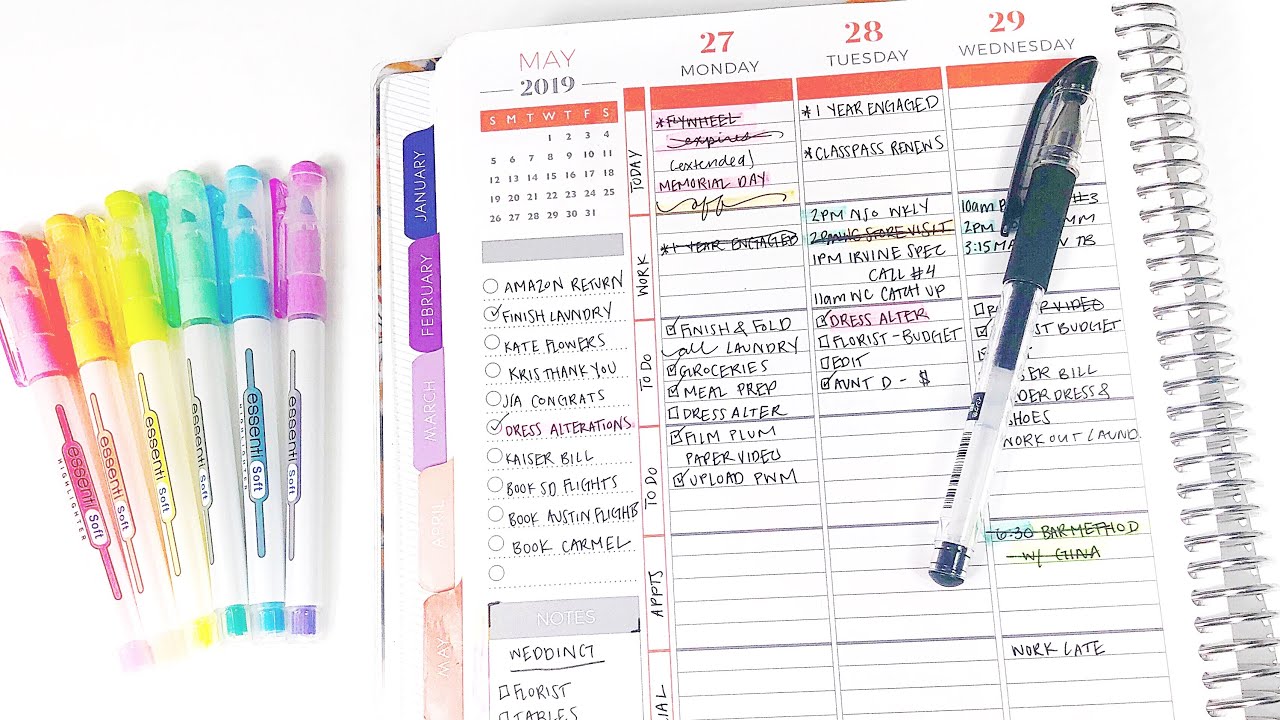 essenti Soft
HIGHLIGHTER
essenti Soft
essenti Soft
essenti Soft
essenti Soft
HIGHLIGHTER
essenti Soft
JANUARY
FEBRUARY
MARCH
APRIL
MAY
MAY
2019
S M T W T F S
1 2 3 4
5 6 7 8 9 10 11
12 13 14 15 16 17 18
19 20 21 22 23 24 25
26 27 28 29 30 31
AMAZON RETURN
FINISH LAUNDRY
KATE FLOWERS
KRIS THANK YOU
JIA CONGRATS
DRESS ALTERATIONS
KAISER BILL
BOOK SD FLIGHTS
BOOK AUSTIN FLIGHTS
BOOK CARMEL
NOTES
WEDDING
FLORIST
TODAY
WORK
TO DO
TO DO
APPTS
27
MONDAY
*FLYWHEEL
expires
(extended)
MEMORIAL DAY
off
*1 YEAR ENGAGED
FINISH & FOLD
all LAUNDRY
GROCERIES
MEAL PREP
DRESS ALTER
FILM PLUM
PAPER VIDEO
UPLOAD PWM
28
TUESDAY
*1 YEAR ENGAGED
*CLASSPASS RENEWS
2PM NSO WKLY
STORE VISIT
1PM IRVINE SPEC
CALL #4
11am WC CATCH UP
DRESS ALTER
FLORIST - BUDGET
EDIT
AUNT D - $
29
WEDNESDAY
10am #3
2PM
3:15
VIDEO
BUDGET
BILL
WORK OUT LAUND.
6:30 BAR METHOD
w/ GINA
WORK LATE